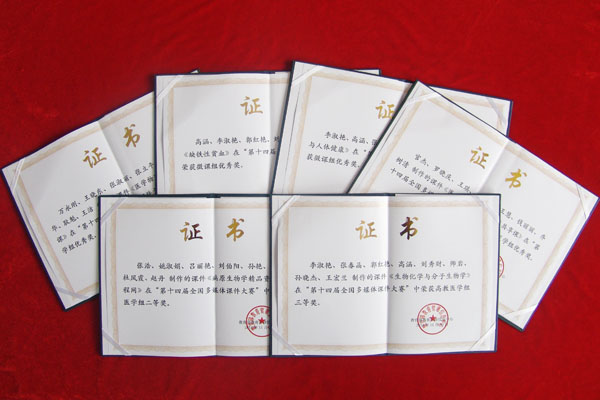 证 书
高涵、李淑艳、郭红艳、
《缺铁性贫血》在“第十四届
荣获微课组优秀奖。
证
李淑艳、高涵、
与人体健康》在“第
获微课组优秀奖。
证 书
万永刚、王晓杰、张淑丽、张立
华、
课》在“第十
组优秀奖。
医学
证 书
宫杰、罗晓庆、王
树清 制作的课件
十四届全国多媒
王慧、钱丽丽、
在“第
学组优秀奖。
证 书
张浩、姚淑娟、吕丽艳、刘伯阳、孙艳、
杜凤霞、赵丹 制作的课件《病原生物学精品
程网》在“第十四届全国多媒体课件大赛”中
医学组二等奖。
证 书
李淑艳、张春晶、郭红艳、高涵、刘秀财、师岩、
孙晓杰、王宏兰 制作的课件《生物化学与分子生物学》
在“第十四届全国多媒体课件大赛”中荣获高教医学组
三等奖。